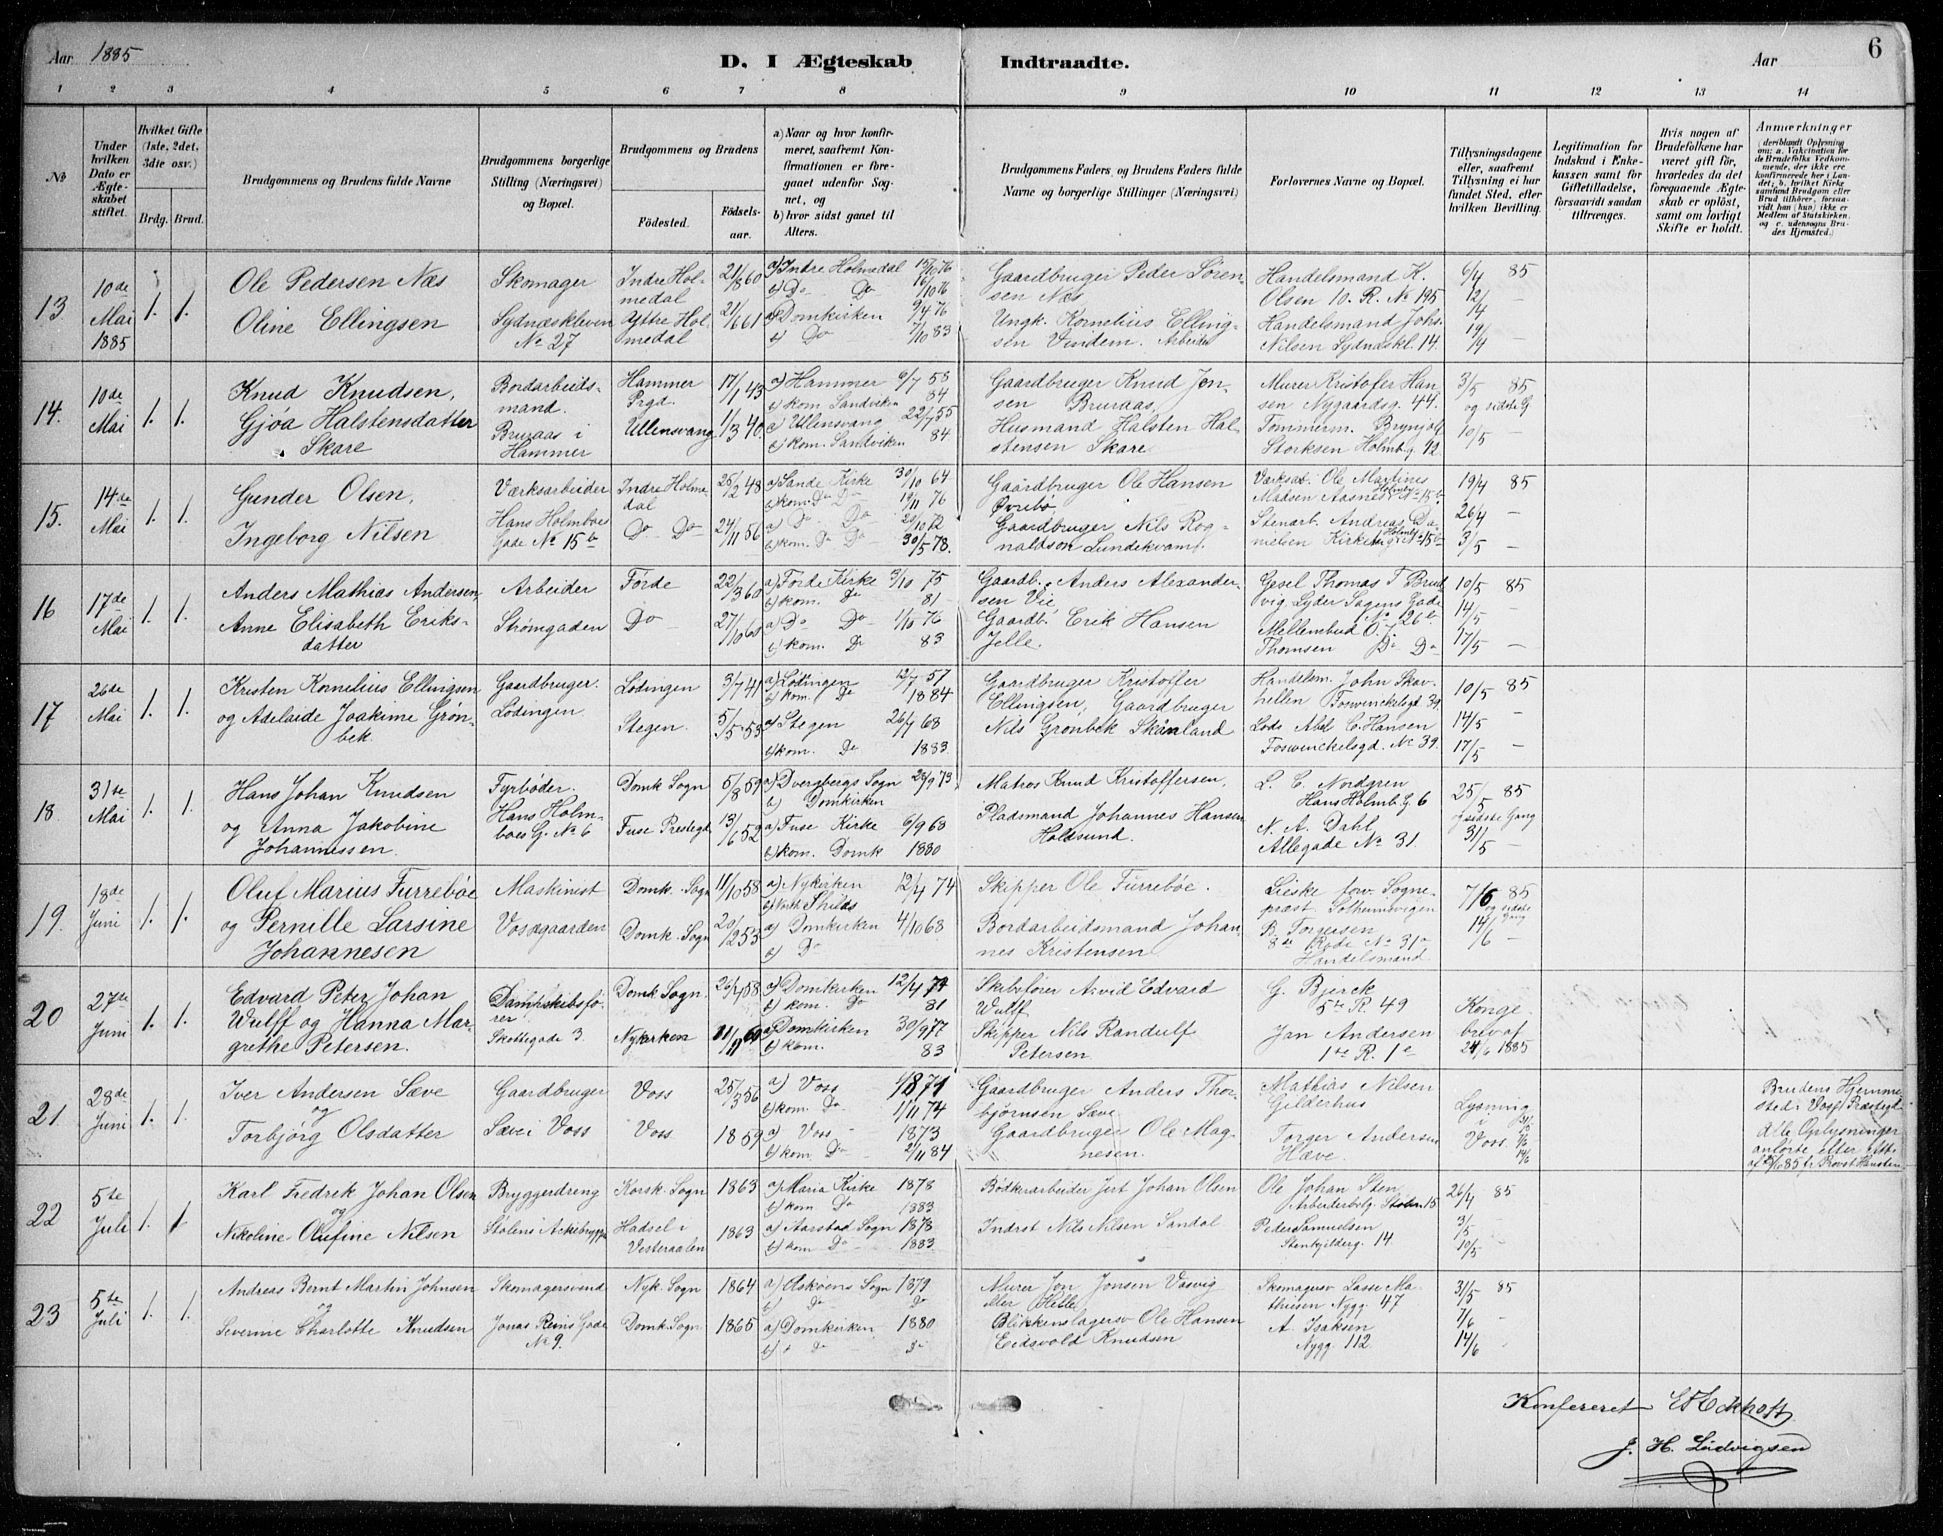 Aar 1885
D. I Ægteskab Indtraadte.
Aar
6
1 2 3 4 5 6 7 8 9 10 11 12 13 14
№
Under hvilken Dato er Ægteskabet stiftet.
Hvilket Gifte (1ste, 2det, 3die osv.)
Brdg. Brud.
Brudgommens og Brudens fulde Navne
Brudgommens borgerlige Stilling (Næringsvei) og Bopæl.
Brudgommens og Brudens
Fødested.
Fødselsaar.
a) Naar og hvor konfirmeret, saafremt Konfirmationen er foregaaet udenfor Sognet, og
b) hvor sidst gaaet til Alters.
Brudgommens Faders og Brudens Faders fulde Navne og borgerlige Stillinger (Næringsvei)
Forlovernes Navne og Bopæl.
Tillysningsdagene eller, saafremt Tillysning ei har fundet Sted, efter hvilken Bevilling.
Legitimation for Indskud i Enkekassen samt for Giftetilladelse, forsaavidt saadan tiltrænges.
Hvis nogen af Brudefolkene har været gift før, hvorledes da det foregaaende Ægteskab er opløst, samt om lovligt Skifte er holdt.
Anmærkninger (deriblandt Oplysning om: a. Vakcination for de Brudefolks Vedkommende, der ikke ere konfirmerede her i Landet; b. hvilket Kirkesamfund Brudgom eller Brud tilhører, forsaavidt han (hun) ikke er Medlem af Statskirken, og c. udensogns Brudes Hjemsted.)
13 10de Mai 1885 1. 1.
Ole Pedersen Næs
Oline Ellingsen
Skomager
Sydnæskleven
No 27
Indre Holmedal 21/8 60
Ytre Holmedal 21/6 61
a) Indre Holmedal 15/10 76
b) Do Do 16/10 76
a) Domkirken 9/4 76
b) Do 7/10 83
Gaardbruger Peder Sørensen Næs
Ungk. Kornelius Ellingsen Vindem. Arbeider
Handelsmand K.
Olsen 10. R. No 195
Handelsmand Johs.
Nilsen Sydnæskl. 14.
6/4 85
12/4 —
19/4 —
14. 10de Mai 1. 1.
Knud Knudsen,
Gjøa Halstensdatter
Skare
Bordarbeidsmand.
Bruraas i
Hammer
Hammer Prgd. 17/1 43
Ullensvang 1/3 40
a) Hammer 6/7 58
b) kom Sandviken 84
a) Ullensvang 22/7 55
b) kom. Sandviken 84
Gaardbruger Knud Jensen Bruraas,
Husmand Halsten Halstensen Skare
Murer Kristofer Hansen Nygaardsg. 44.
Tømmerm. Brynjolf
Storksen Holmbg 92
3/5 85
og sidste G
10/5
15. 14de Mai 1. 1.
Gunder Olsen,
Ingeborg Nilsen
Værksarbeider
Hans Holmboe
Gade No 15b
Indre Holmedal 25/2 48
Do Do 24/11 56
a) Sande Kirke 30/10 64
b) kom. Do Do 19/11 76
a) Do Do 2/10 72
b) kom. Do Do 30/5 78.
Gaardbruger Ole Hansen
Øvrebø,
Gaardbruger Nils Rognaldson Lundekvamt.
Værksab. Ole Martines
Madsen Aasnes Holmbg No 15b.
Stenarb. Andreas Danielsen
19/4 85
26/4 —
3/5 —
16 17de Mai 1. 1.
Anders Mathias Andersen,
Anne Elisabeth Eriksdatter
Arbeider
Strømgaden
Førde 22/3 60
Do 27/10 60
a) Førde Kirke 3/10 75
b) kom. Do 81
a) Do Do 1/10 76
b) kom. Do 83
Gaardb. Anders Alexandersen Vie,
Gaardb. Erik Hansen
Jelle.
Gesel Thomas T Brudvig Lyder Sagens Gade
No 26b.
Mellembud O. J.
Thomsen Do Do
10/5 85
14/5 —
17/5 —
17 26de Mai 1. 1.
Kristen Kornelius Ellingsen
og Adelaide Joakime Grønbek.
Gaardbruger.
Lødingen
Lødingen 3/7 41
Stegen. 5/5 53
a) Lødingen 12/7 57
b) kom. Do 1884
a) Stegen 26/7 68
b) kom. Do 1883
Gaardbruger Kristoffer
Ellingsen, Gaardbruger
Nils Grønbek Skånland
Handelsm. John Skavhellen Foswinckelsgd 39.
Lods Abel C. Hansen
Foswinckelsgd. No 39.
10/5 85
14/5 —
17/5 —
18 31te Mai 1. 1.
Hans Johan Knudsen
og Anna Jakobine
Johannessen.
Fyrbøder.
Hans Holmboes G. No 6
Domk Sogn 5/8 59
Fuse Prestegd 13/6 52
a) Dvergbergs Sogn 28/9 73
b) Domkirken
a) Fuse Kirke 6/9 68
b) kom. Domk 1880
Matros Knud Kristoffersen,
Pladsmand Johannes Hansen
Holdsund.
L. C. Nordgren
Hans Holmb. G 6
N. A. Dahl
Allegade No 31.
25/5 85
og sidste Gang
31/5 —
19. 18de Juni 1. 1.
Oluf Marius Furrebøe
og Pernille Larsine
Johannesen
Maskinest
Vosegaarden
Domk. Sogn 11/10 58
Domk. Sogn 20/12 53
a) Nykirken 12/4 74
b) North Shilds
a) Domkirken 4/10 68
b) Do
Skipper Ole Furrebøe.
Bordarbeidsmand Johannes Kristensen
Lieske fow. Sognepræst
B. Torgersen
8de Rode No 31a
Handelsmand
7/6 85
og sidste Gang
14/6 —
20 27de Juni 1. 1.
Edvard Peter Johan
Wulff og Hanna Margrethe Petersen.
Dampskibsfører.
Skottegade 3.
Domk. Sogn. 26/4 58
Nykirken 11/11 60
a) Domkirken 12/4 74
b) kom. Do 81
a) Domkirken 30/9 77
b) kom. 83
Skibsfører Arvid Edvard
Wulff
Skipper Nils Randulf
Petersen
G. Bjerck
5te R. 49
Jan Andersen
1te R. 1e
Kongebrev af
24/6 1885
21. 28de Juni 1. 1.
Iver Andersen Sæve
og
Torbjørg Olsdatter
Gaardbruger
Sæve i Voss
Voss 25/3 56
Voss 1859
a) Voss 1871
b) kom. Do 1/11 74
a) Voss 1873
b) kom. Do 2/11 84
Gaardbruger Anders Thorbjørnsen Sæve
Gaardbruger Ole Magnesen.
Mathias Nilsen
Gilderhus
Torger Andersen
Hæve.
Lysning
i
Voss 31/5 7/6 14/6
Brudens Hjemmested i Voss Præstegd.
Alle Oplysninger
anførte efter Attest
af 25/6 85 fr. Provst Hansteen
22 5te Juli 1. 1
Karl Fredrek Johan Olsen
og
Nikoline Olufine Nilsen
Bryggerdreng
Stølens Ackebrygge
Korsk. Sogn 1863
Hadsel i Vesteraalen 1863
a) Maria Kirke 1878
b) kom. Do 1883
a) Aarstad Sogn 1878
b) kom Do 1883
Bødkerarbeider Jert Johan Olsen
Indrst Nils Nilsen Sandal
Ole Johan Sten
Arbeiderbolg Stølen 15
Peder Samuelsen
Stenkjelderg. 14
26/4 85
3/5
10/5
23 5te Juli 1. 1.
Andreas Bernt Martin Johnsen
og
Severine Charlotte Knudsen
Skomagersvend
Jonas Reins Gade
No 9.
Nyk. Sogn 1864
Domk. Sogn 1865
a) Askøens Sogn 1879
b) Do Do
a) Domkirken 1880
b) Do Do
Murer Jon Jonsen Vasvig
eller Helle
Blikkenslagersv Ole Hansen
Eidsvold Knudsen
Skomagersv Lasse Mathiesen Nygg 47
A. Isaksen
Nygg. 112
31/5 85
7/6 -
14/6
Konfereret E. Eckhoff
J. H. Ludvigsen